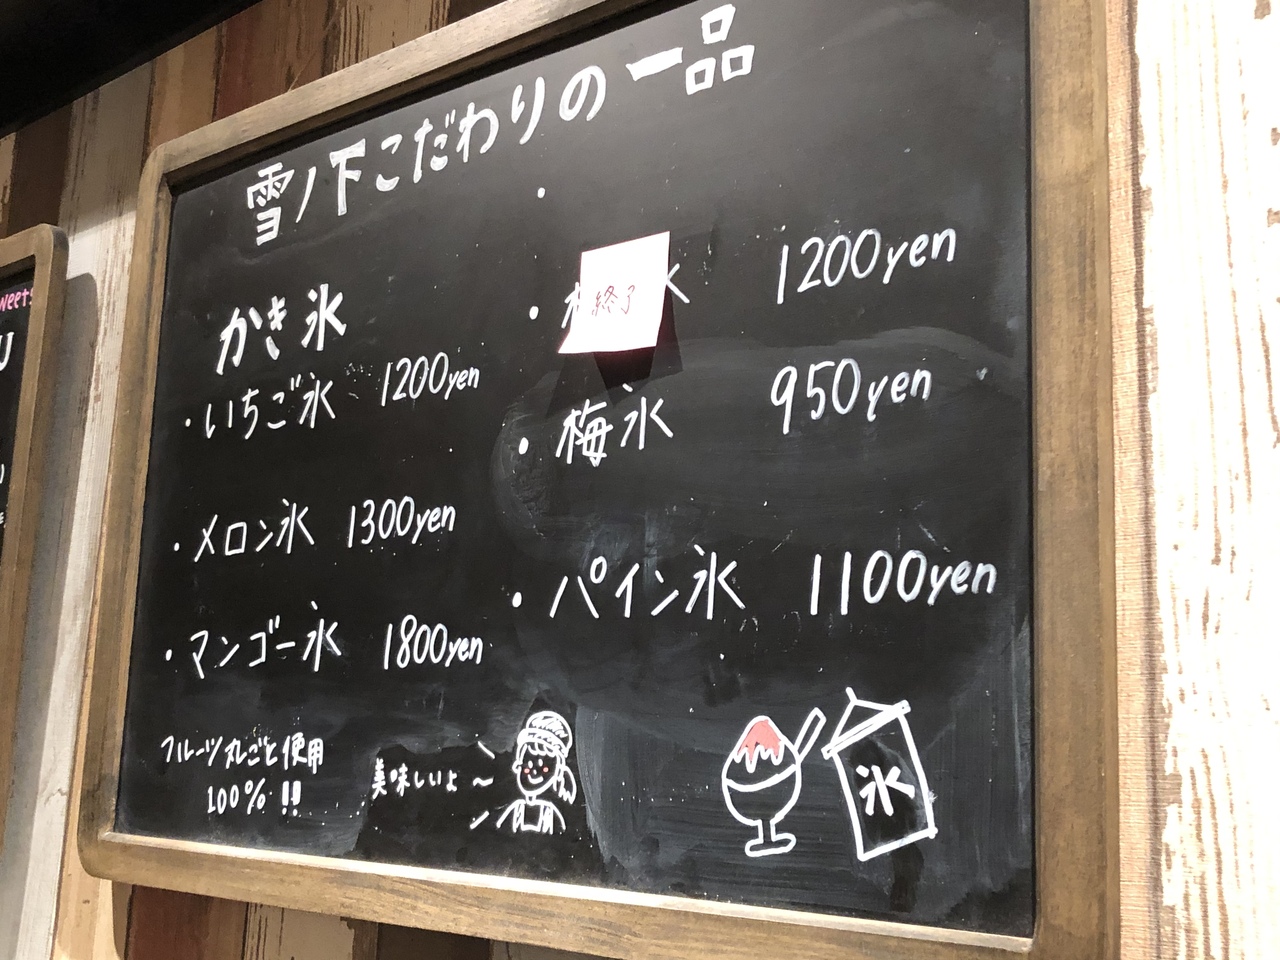 雪ノ下こだわりの一品
かき氷
・いちご氷 1200yen
・メロン氷 1300yen
・マンゴー氷 1800yen
フルーツ丸ごと使用
100% !!
・ 終了 1200yen
・梅氷 950yen
・パイン氷 1100yen
美味しいよ〜
氷
weets
U